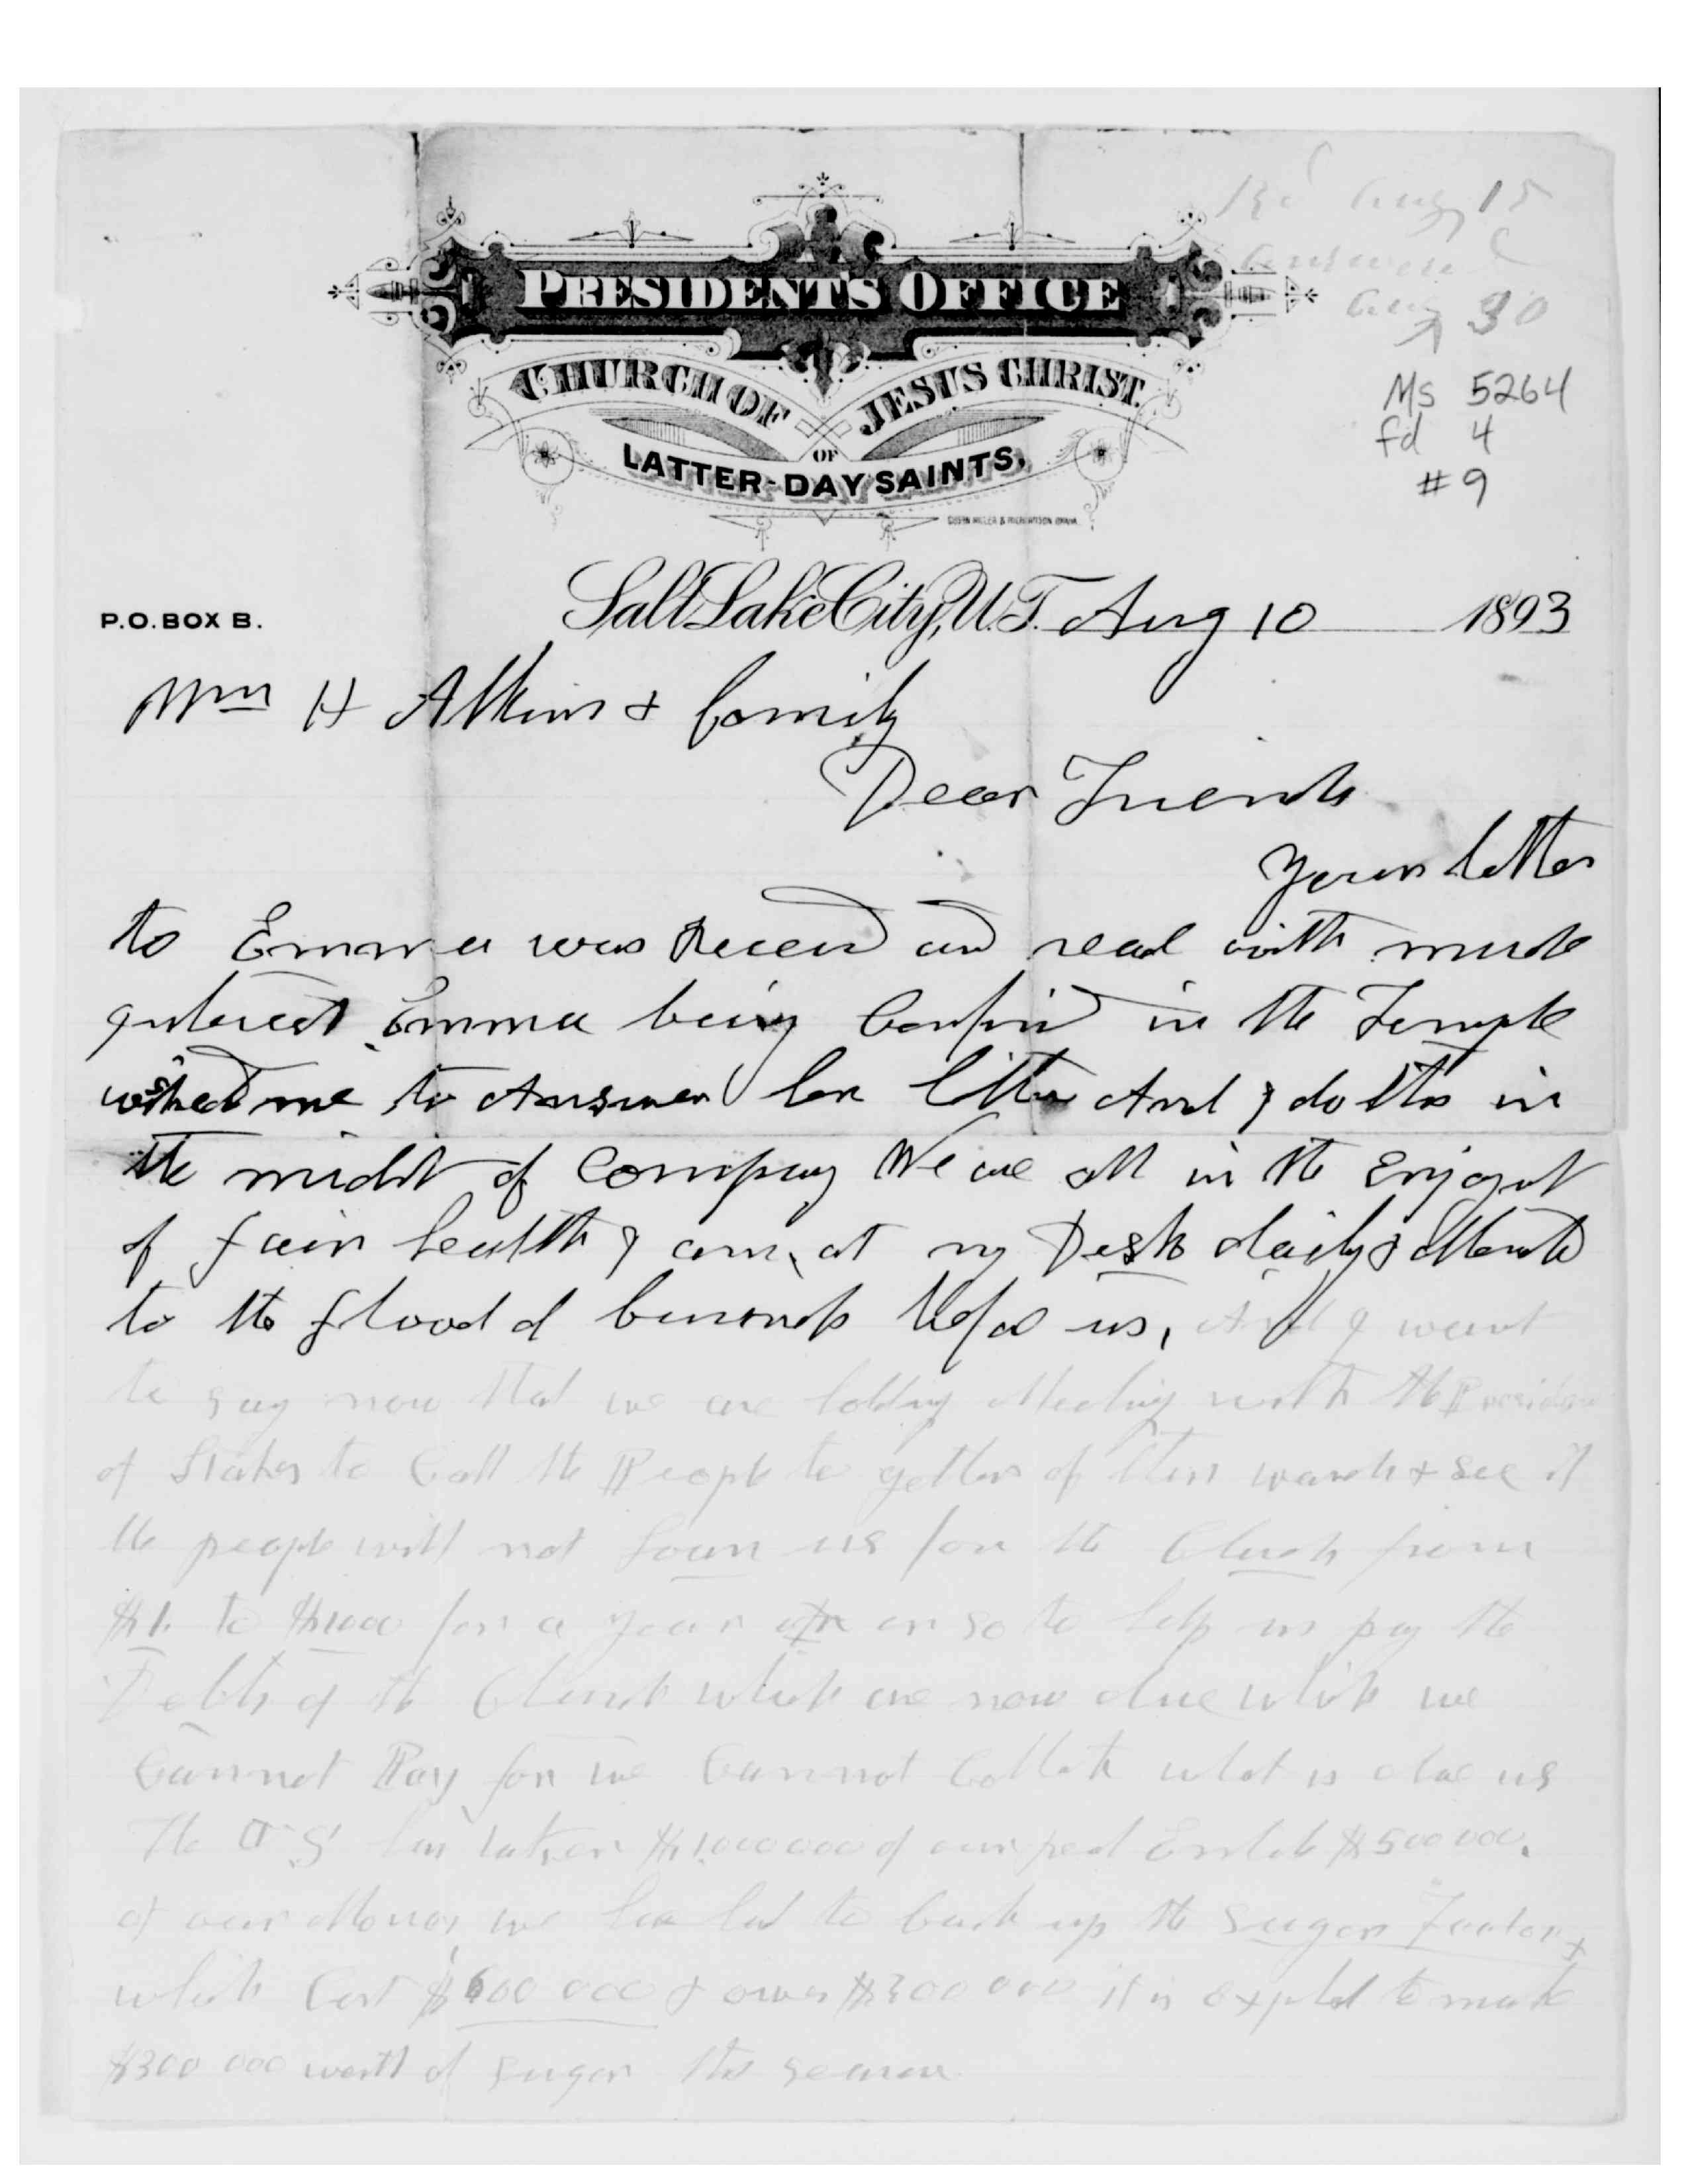 Recd Aug 15
Answered
Aug 30
Ms 5264
fd 4
#9
PRESIDENT'S OFFICE
CHURCH OF JESUS CHRIST
OF
LATTER-DAY SAINTS,
P.O. BOX B.
Salt Lake City, U.T. Aug 10 1893
Wm H Atkin & family
Dear Friends
Your letter
to Emma was Receivd and read with much
interest Emma being Confind in the Temple
wished me to Answer her letter And I do this in
the midst of Company We are all in the Enjoymt
of fair health I am at my Desk daily & attend
to the flood of business befor us, And I want
to say now that we are holding Meeting with the Presiden
of Stakes to Call the People to gether of their wards & see if
the people will not Loan us for the Church from
$1. to $1000 for a year or so to help us pay the
Debts of the Church which are now due which we
Cannot Pay for we Cannot Collect what is due us
The U S has taken $1,000000 of our real Estate $500 000.
of our Money we have had to back up the Sugar Factory
which Cost $600 000 & owes $300 000 it is expted to make
$300 000 worth of Sugar this season